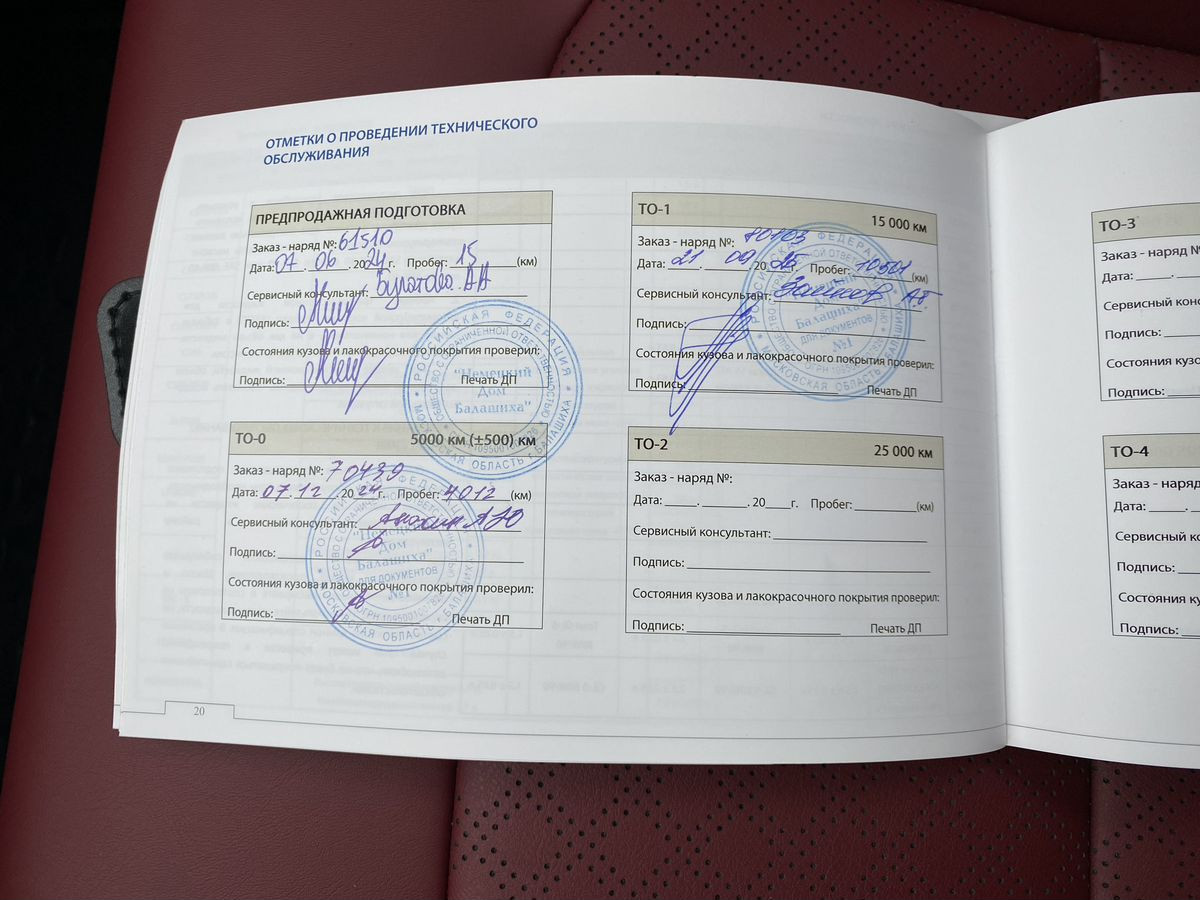 ОТМЕТКИ О ПРОВЕДЕНИИ ТЕХНИЧЕСКОГО
ОБСЛУЖИВАНИЯ
ПРЕДПРОДАЖНАЯ ПОДГОТОВКА
Заказ - наряд №: 61510
Дата: 07. 06. 2024 г. Пробег: 15 (км)
Сервисный консультант: Булатова. АА
Подпись:
Состояния кузова и лакокрасочного покрытия проверил:
Подпись: Печать ДП
РОССИЙСКАЯ ФЕДЕРАЦИЯ * МОСКОВСКАЯ ОБЛАСТЬ г. БАЛАШИХА *
ОБЩЕСТВО С ОГРАНИЧЕННОЙ ОТВЕТСТВЕННОСТЬЮ
"Немецкий
Дом
Балашиха"
ТО-0 5000 км (±500) км
Заказ - наряд №: 70439
Дата: 07. 12. 2024 г. Пробег: 4012 (км)
Сервисный консультант: Анохин АЮ
Подпись:
Состояния кузова и лакокрасочного покрытия проверил:
Подпись: Печать ДП
"Немецкий
Дом
Балашиха"
ДЛЯ ДОКУМЕНТОВ
№1
ТО-1 15 000 км
Заказ - наряд №:
Дата: 21. 09. 2025 г. Пробег: 10501 (км)
Сервисный консультант:
Подпись:
Состояния кузова и лакокрасочного покрытия проверил:
Подпись: Печать ДП
Дом
Балашиха"
ДЛЯ ДОКУМЕНТОВ
№1
ТО-2 25 000 км
Заказ - наряд №:
Дата: . . 20 г. Пробег: (км)
Сервисный консультант:
Подпись:
Состояния кузова и лакокрасочного покрытия проверил:
Подпись: Печать ДП
20
ТО-3
Заказ - наряд
Дата:
Сервисный
Подпись:
Состояния
Подпись:
ТО-4
Заказ - наряд
Дата:
Сервисный
Подпись:
Состояния
Подпись: